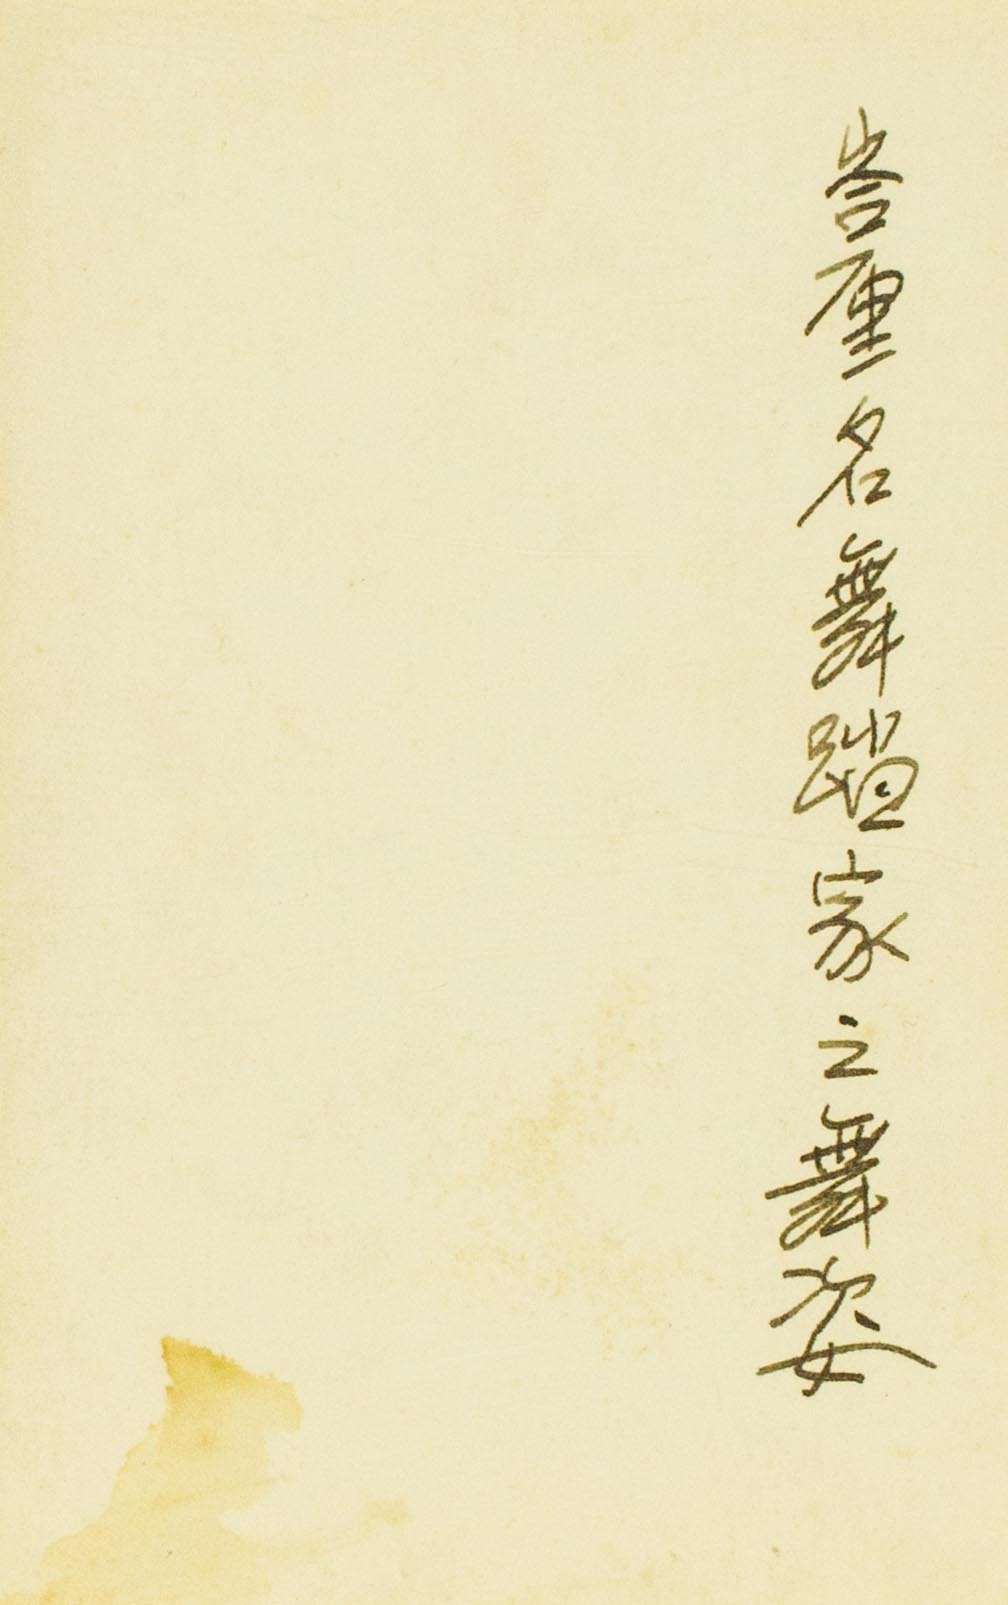 峇厘名舞蹈家之舞姿